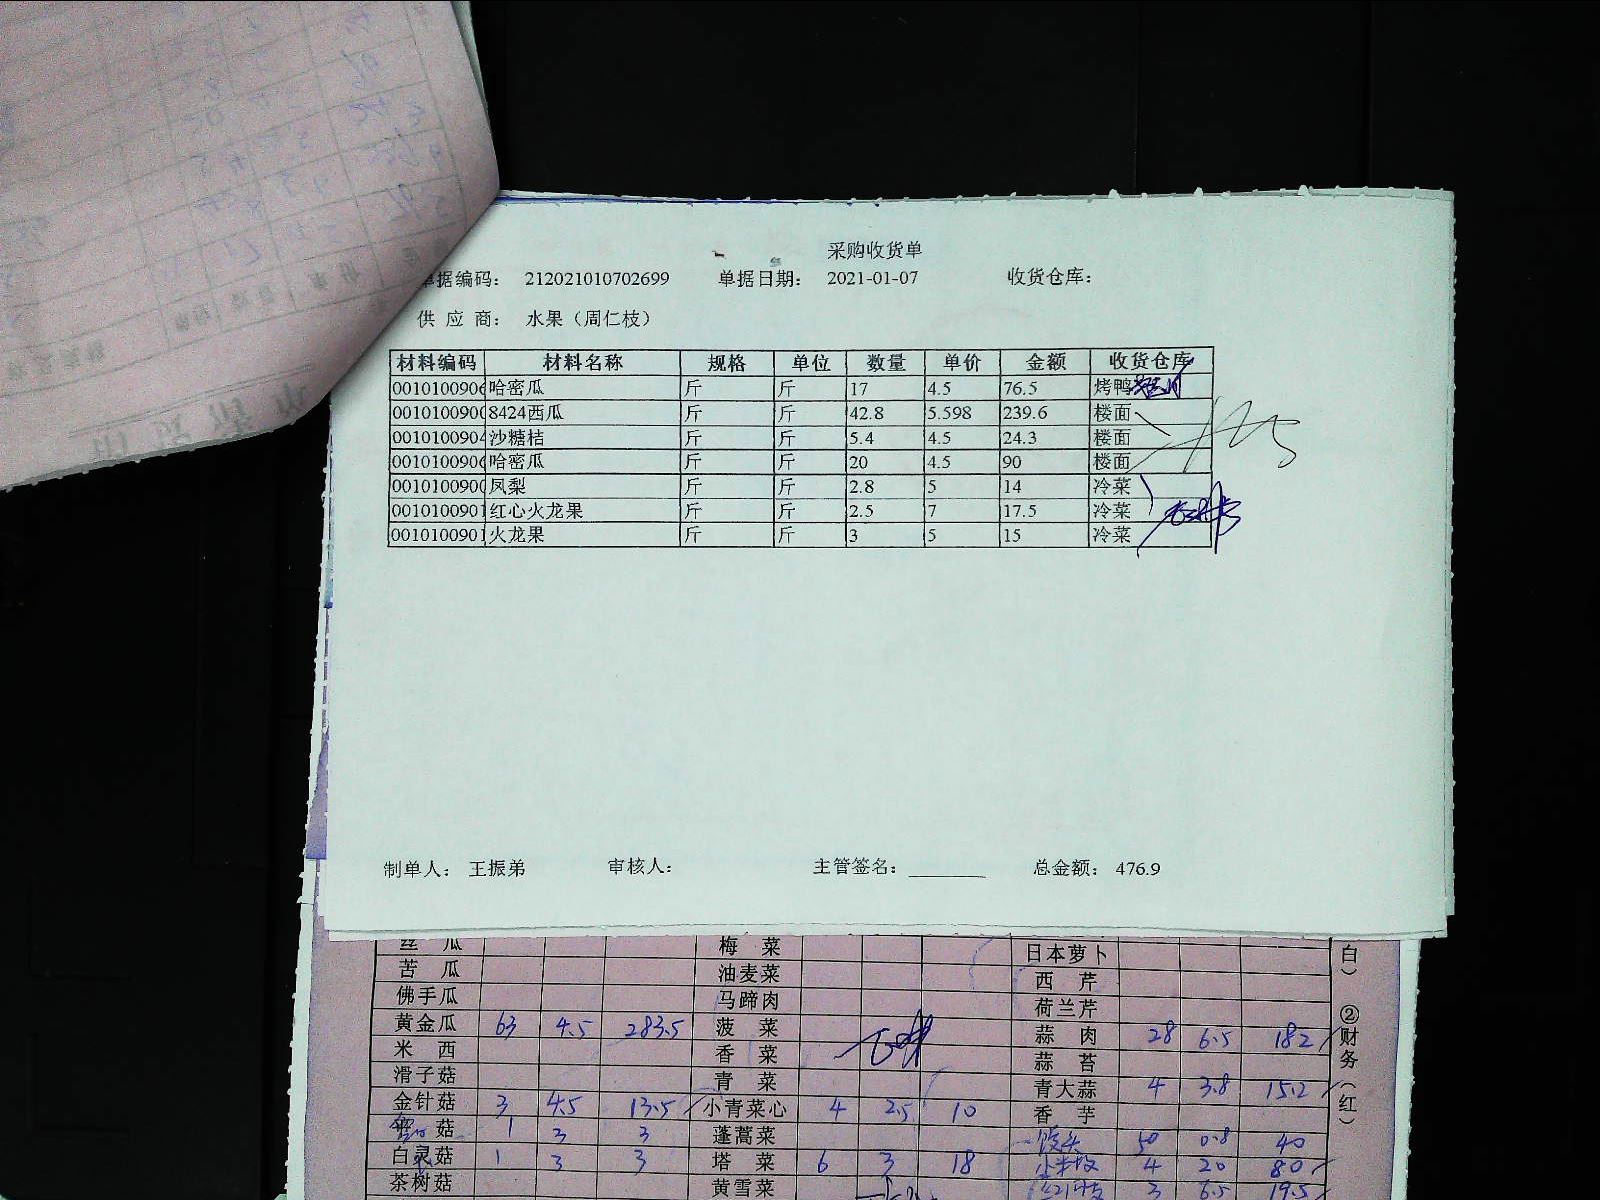 采购收货单
单据编码： 212021010702699 单据日期： 2021-01-07 收货仓库：
供 应 商： 水果（周仁枝）
材料编码 材料名称 规格 单位 数量 单价 金额 收货仓库
0010100906 哈密瓜 斤 斤 17 4.5 76.5 烤鸭
0010100900 8424西瓜 斤 斤 42.8 5.598 239.6 楼面
0010100904 沙糖桔 斤 斤 5.4 4.5 24.3 楼面
0010100906 哈密瓜 斤 斤 20 4.5 90 楼面
0010100900 凤梨 斤 斤 2.8 5 14 冷菜
0010100901 红心火龙果 斤 斤 2.5 7 17.5 冷菜
0010100901 火龙果 斤 斤 3 5 15 冷菜
制单人： 王振弟 审核人： 主管签名： 总金额： 476.9
丝 瓜 梅 菜 日本萝卜
苦 瓜 油麦菜 西 芹
佛手瓜 马蹄肉 荷兰芹
黄金瓜 63 4.5 283.5 菠 菜 蒜 肉 28 6.5 182
米 西 香 菜 蒜 苔
滑子菇 青 菜 青大蒜 4 3.8 15.2
金针菇 3 4.5 13.5 小青菜心 4 2.5 10 香 芋
菇 1 3 3 蓬蒿菜 馒头 50 0.8 40
白灵菇 1 3 3 塔 菜 6 3 18 4 20 80
茶树菇 黄雪菜 3 6.5 19.5
白） ②财务（红）